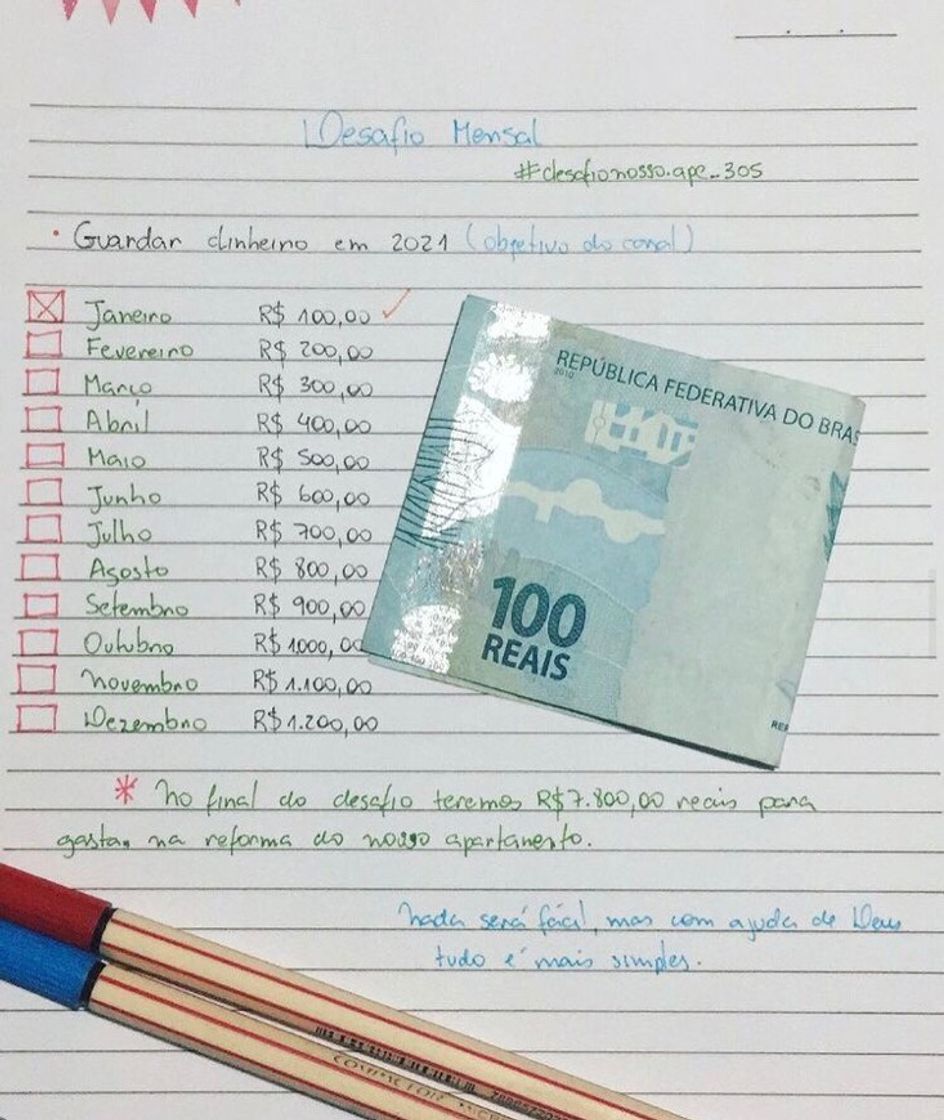 Desafio Mensal
#desafionosso.ape_305
• Guardar dinheiro em 2021 (objetivo do casal)
Janeiro R$ 100,00 ✓
Fevereiro R$ 200,00
Março R$ 300,00
Abril R$ 400,00
Maio R$ 500,00
Junho R$ 600,00
Julho R$ 700,00
Agosto R$ 800,00
Setembro R$ 900,00
Outubro R$ 1.000,00
Novembro R$ 1.100,00
Dezembro R$ 1.200,00
REPÚBLICA FEDERATIVA DO BRAS
2010
100
REAIS
* No final do desafio teremos R$ 7.800,00 reais para
gastar na reforma do nosso apartamento.
Nada será fácil, mas com ajuda de Deus
tudo é mais simples.
COMPACTOR